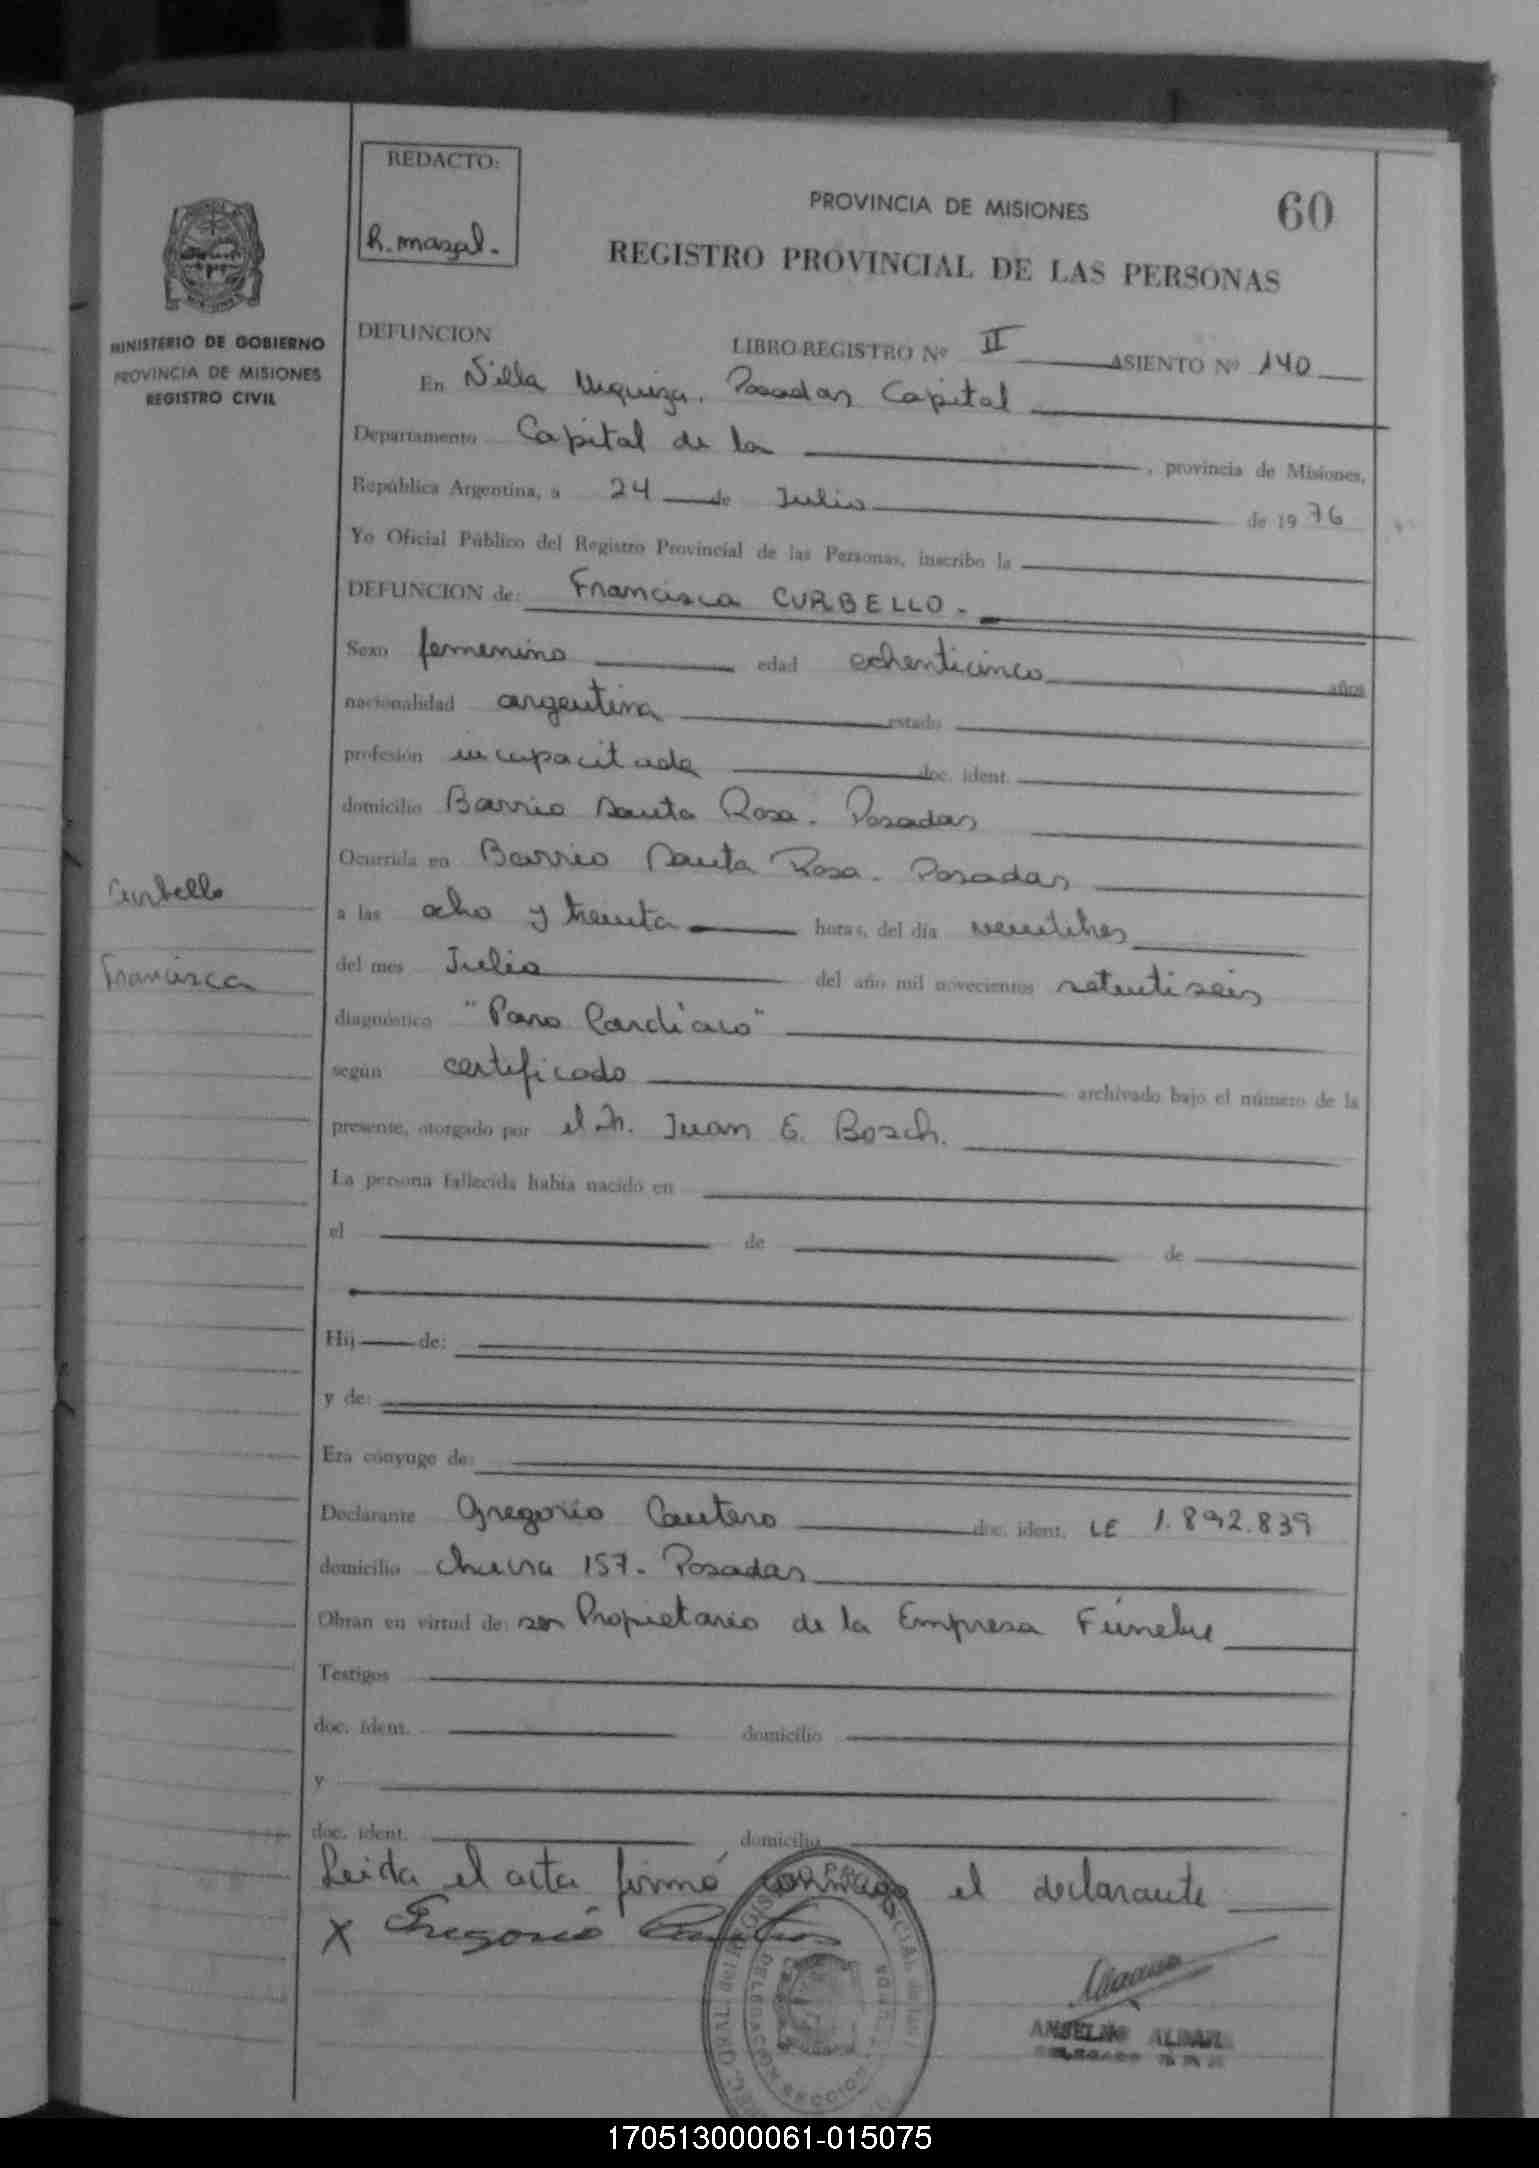 REDACTO:
PROVINCIA DE MISIONES
60
REGISTRO PROVINCIAL DE LAS PERSONAS
MINISTERIO DE GOBIERNO
PROVINCIA DE MISIONES
REGISTRO CIVIL
DEFUNCION
LIBRO REGISTRO Nº II ASIENTO Nº 140
En Villa Urquiza. Posadas Capital
Departamento Capital de la , provincia de Misiones,
República Argentina, a 24 de Julio de 1976
Yo Oficial Público del Registro Provincial de las Personas, inscribo la
DEFUNCION de: Francisca CURBELLO.
Sexo femenino edad ochenticinco años
nacionalidad argentina estado
profesión incapacitada doc. ident.
domicilio Barrio Santa Rosa. Posadas
Ocurrida en Barrio Santa Rosa. Posadas
Curbello
a las ocho y treinta horas, del día veintitres
Francisca
del mes Julio del año mil novecientos setentiseis
diagnóstico "Paro Cardíaco"
según certificado archivado bajo el número de la
presente, otorgado por el Juan E. Bosch.
La persona fallecida había nacido en
el de de
Hij de:
y de:
Era cónyuge de:
Declarante Gregorio Cantero doc. ident. LE 1.892.839
domicilio 157. Posadas
Obran en virtud de: ser Propietario de la Empresa Fúnebre
Testigos
doc. ident. domicilio
y
doc. ident. domicilio
Leida el acta firmó conmigo el declarante
X Gregorio
ANSELMO
170513000061-015075